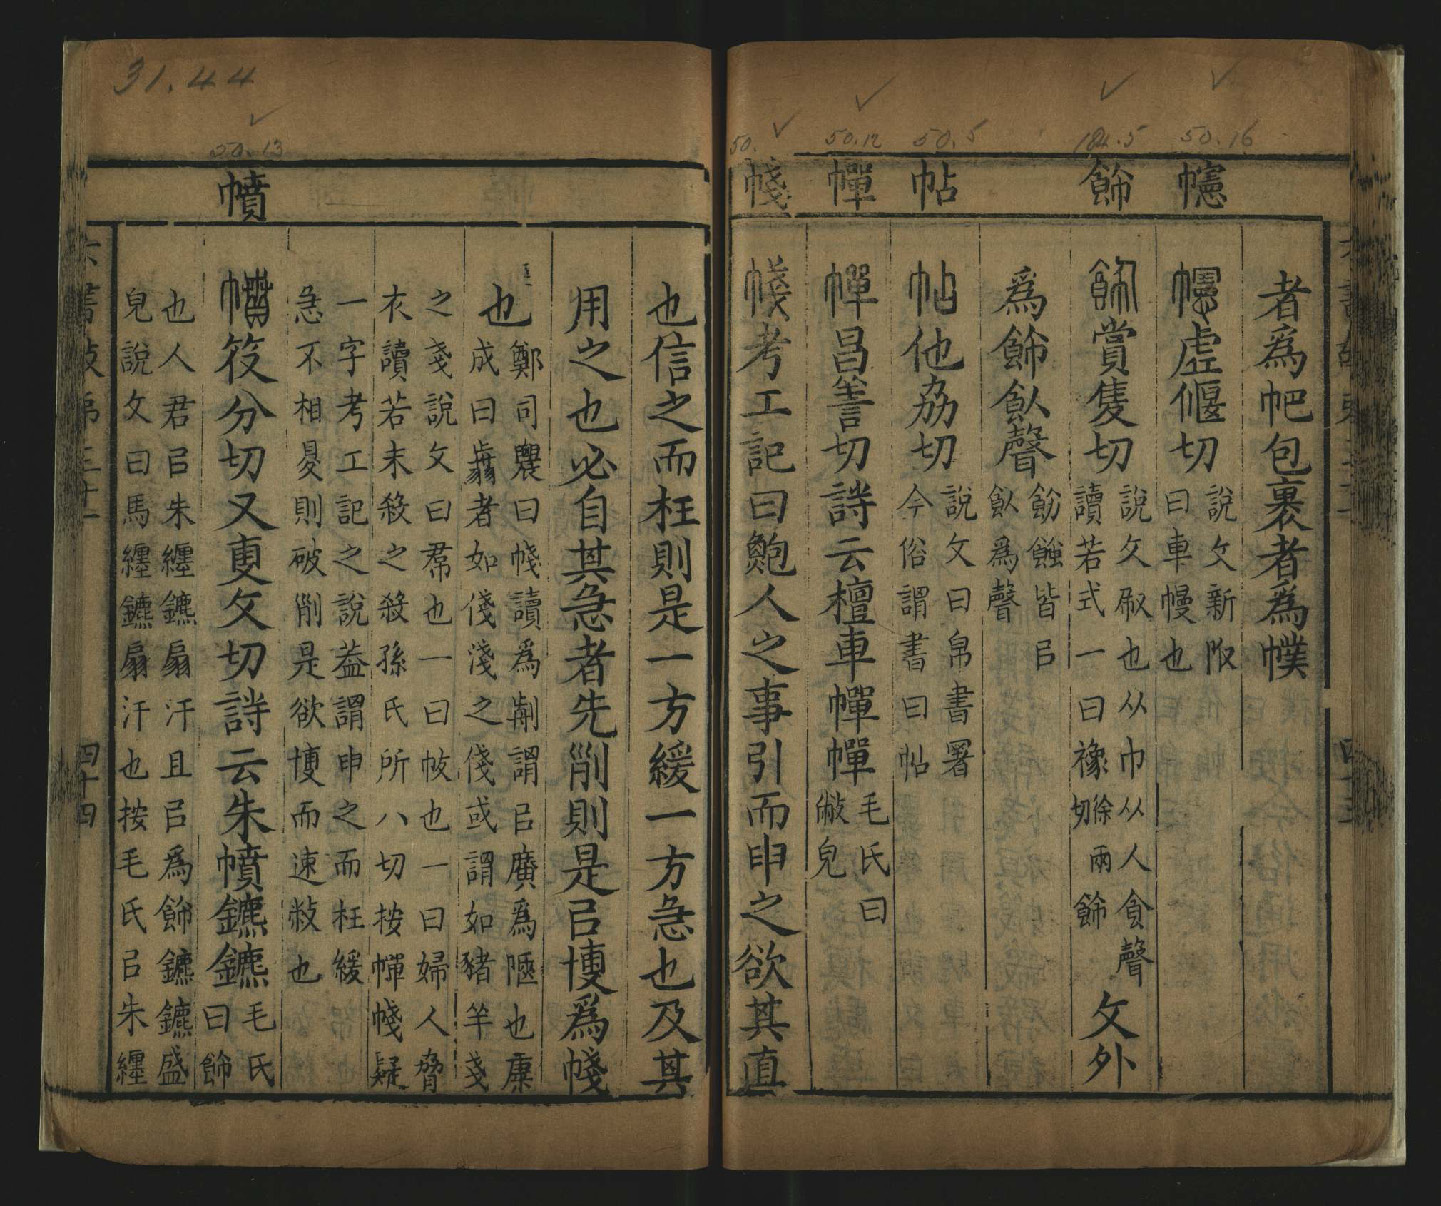 50.16
184.5
50.5
50.12
50.
幰
飾
帖
幝
帴
者爲帊包裹者爲幞
幰虛偃切
說文新附
曰車幔也
飾賞隻切
說文㕞也从巾从人食聲
讀若式一曰襐徐兩切飾
文外
爲飾飤聲
飭蝕皆㠯
飤爲聲
帖他劦切
說文曰帛書署
今俗謂書曰帖
幝昌善切詩云檀車幝幝
毛氏曰
敝皃
帴考工記曰鮑人之事引而申之欲其直
31.44
50.13
幩
也信之而枉則是一方緩一方急也及其
用之也必自其急者先𠜂則是㠯愽爲帴
也
鄭司農曰帴讀爲翦謂㠯廣爲陿也康
成曰翦者如俴淺之俴或謂如豬羊戔
之戔說文曰帬也一曰帔也一曰婦人脅
衣讀若末殺之殺孫氏所八切按幝帴疑
一字考工記之說葢謂申之而枉緩
急不相及則破𠜂是欲愽而速敝也
幩符分切又更文切詩云朱幩鑣鑣
毛氏
曰飾
也人君㠯朱纏鑣扇汗且㠯爲飾鑣鑣盛
皃說文曰馬纏鑣扇汗也按毛氏㠯朱纏
六書故弟三十一
四十四